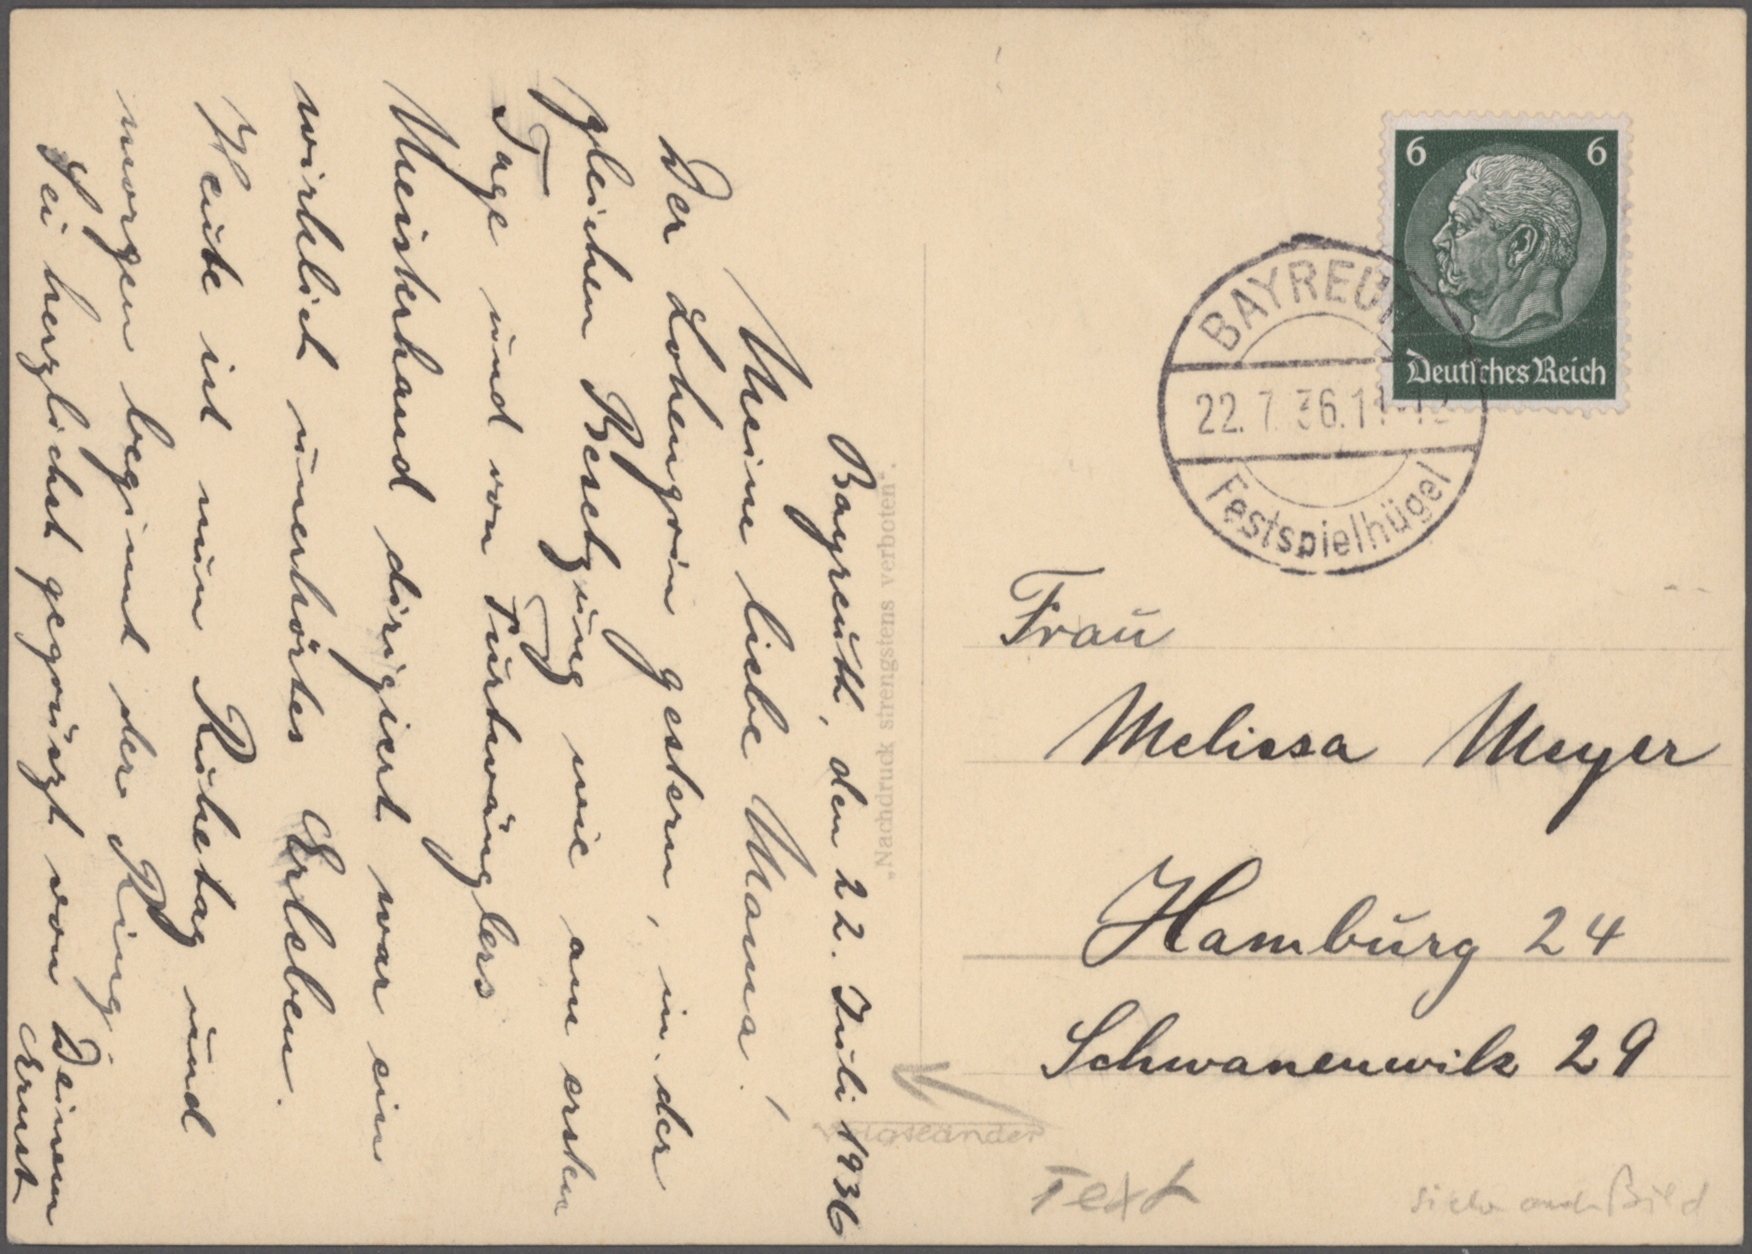 Bayreuth, den 22. Juli 1936
Meine liebe Mama!
Der Lohengrin gestern, in der
gleichen Besetzung wie am ersten
Tage und von Furtwänglers
Meisterhand dirigiert war ein
wirklich unerhörtes Erleben.
Heute ist nun Ruhetag und
morgen beginnt der Ring.
Sei herzlichst gegrüszt von Deinem
Ernst
„Nachdruck strengstens verboten“.
6 6
Deutsches Reich
BAYREUTH
22.7.36.11-12
Festspielhügel
Frau
Melissa Meyer
Hamburg 24
Schwanenwik 29
Voigtländer
Text
siehe auch Bild